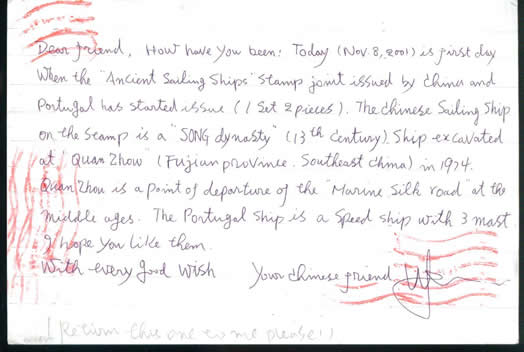 Dear friend, How have you been! Today (Nov. 8, 2001) is first day
When the "Ancient Sailing Ships" Stamp joint issued by China and
Portugal has started issue (1 Set 2 pieces). The Chinese Sailing Ship
on the Stamp is a "SONG dynasty" (13th Century) Ship excavated
at "Quan Zhou" (Fujian province. Southeast China) in 1974.
Quan Zhou is a point of departure of the "Marine Silk road" at the
middle ages. The Portugal Ship is a Speed ship with 3 mast
I hope you like them.
With every good wish Your chinese friend
(Return this one to me please!!